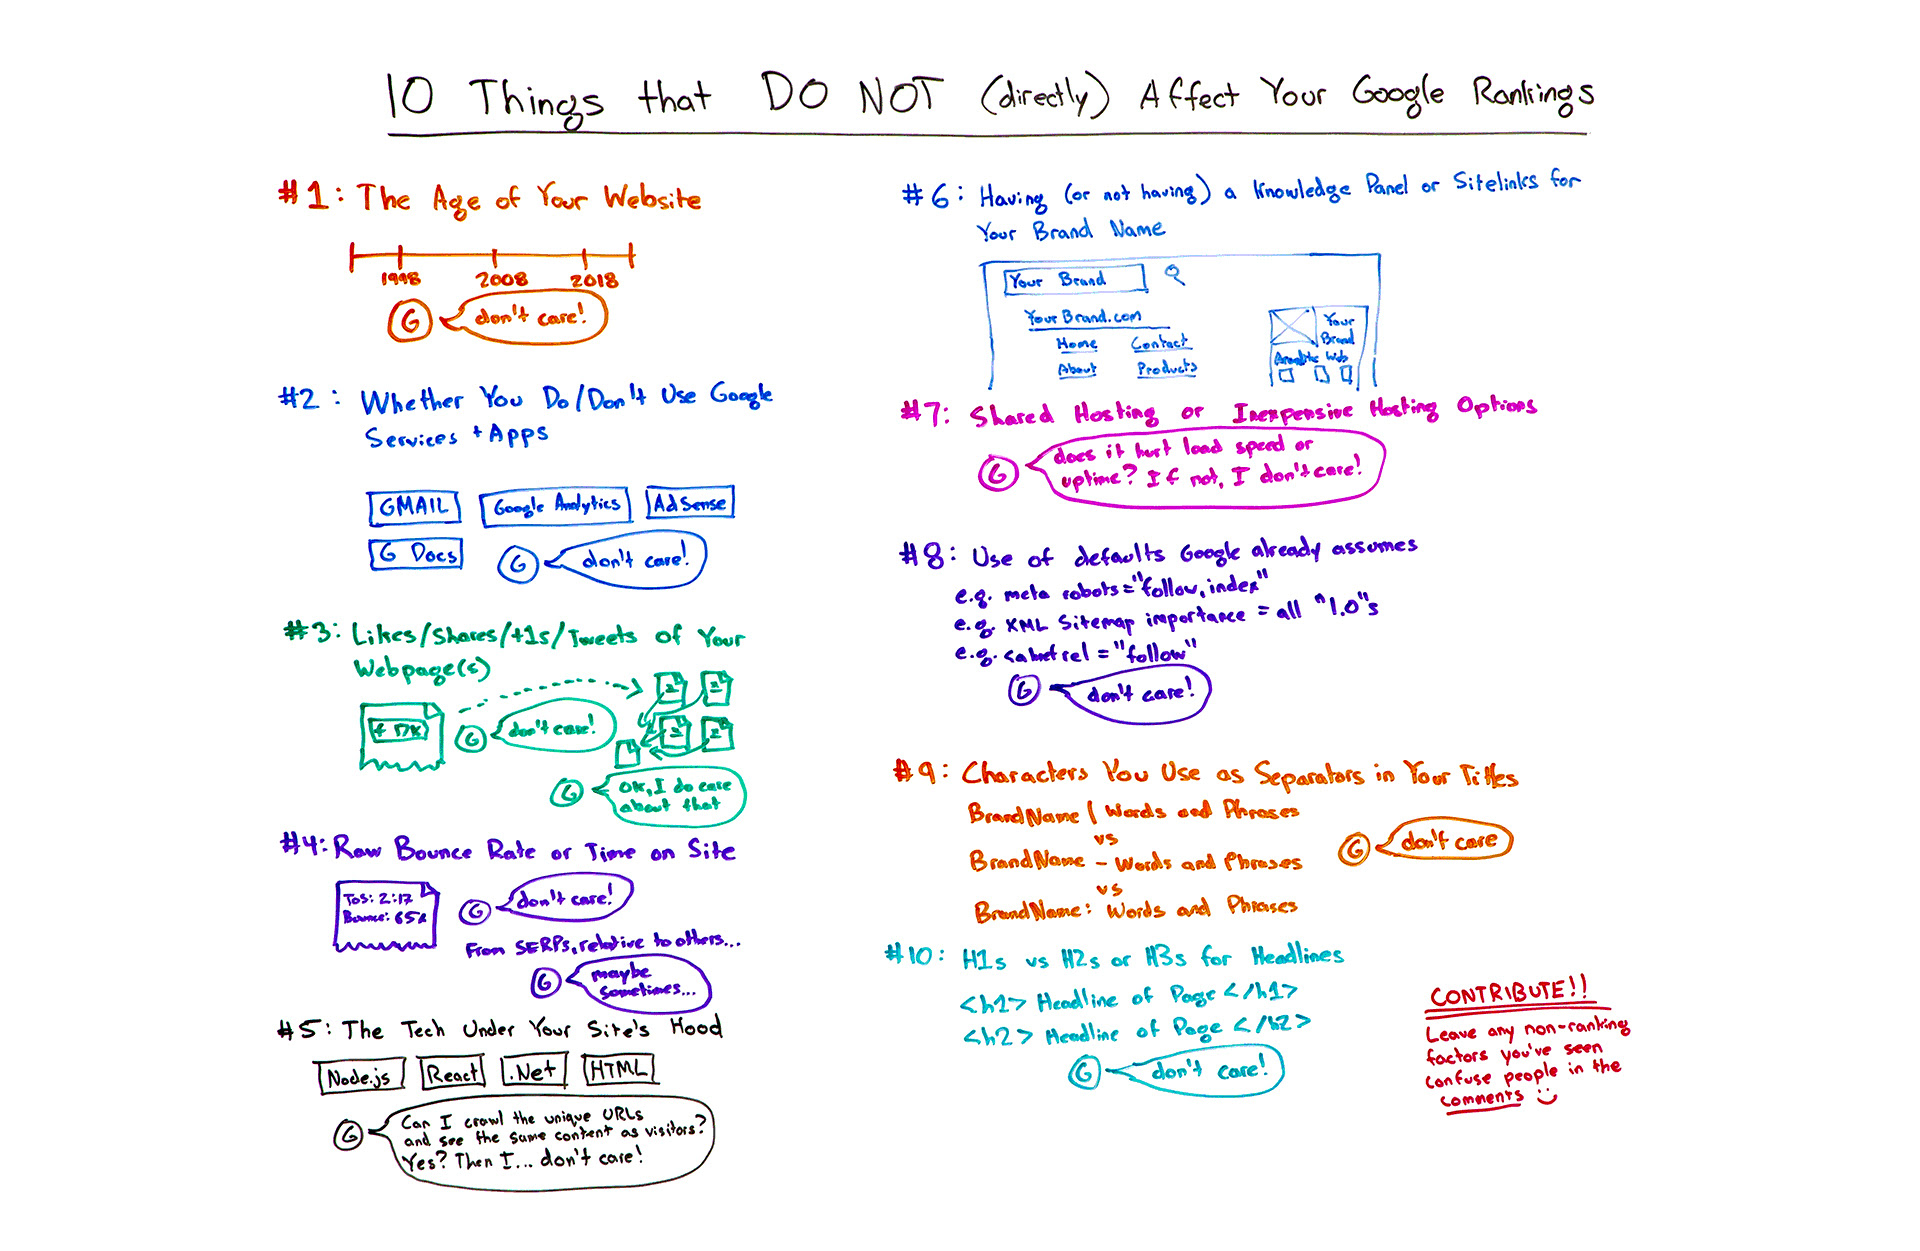 10 Things that DO NOT (directly) Affect Your Google Rankings
#1: The Age of Your Website
1998 2008 2018
G don't care!
#2: Whether You Do/Don't Use Google
Services + Apps
GMAIL Google Analytics AdSense
G Docs G don't care!
#3: Likes/Shares/+1s/Tweets of Your
Webpage(s)
f 17K G don't care!
G OK, I do care
about that
#4: Raw Bounce Rate or Time on Site
ToS: 2:17
Bounce: 65%
G don't care!
From SERPs, relative to others...
G maybe
sometimes...
#5: The Tech Under Your Site's Hood
Node.js React .Net HTML
G Can I crawl the unique URLs
and see the same content as visitors?
Yes? Then I... don't care!
#6: Having (or not having) a Knowledge Panel or Sitelinks for
Your Brand Name
Your Brand
YourBrand.com
Home Contact
About Products
Your
Brand
Web
#7: Shared Hosting or Inexpensive Hosting Options
G does it hurt load speed or
uptime? If not, I don't care!
#8: Use of defaults Google already assumes
e.g. meta robots="follow, index"
e.g. XML Sitemap importance = all "1.0"s
e.g. rel = "follow"
G don't care!
#9: Characters You Use as Separators in Your Titles
BrandName | Words and Phrases
vs
BrandName - Words and Phrases
vs
BrandName: Words and Phrases
G don't care
#10: H1s vs H2s or H3s for Headlines
<h1> Headline of Page </h1>
<h2> Headline of Page </h2>
G don't care!
CONTRIBUTE!!
Leave any non-ranking
factors you've seen
confuse people in the
comments